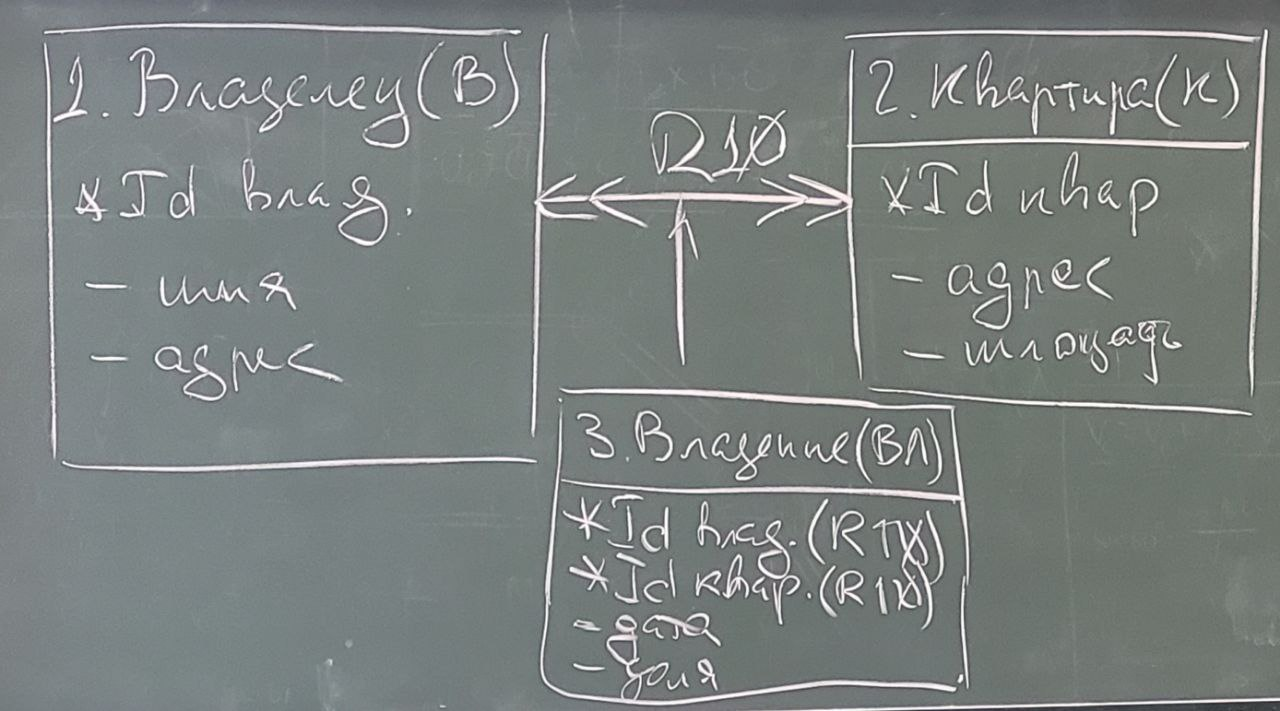 1. Владелец (В)
* Id влад.
- имя
- адрес
R10
2. Квартира (К)
* Id квар
- адрес
- площадь
3. Владение (ВЛ)
* Id влад. (R10)
* Id квар. (R10)
- дата
- доля